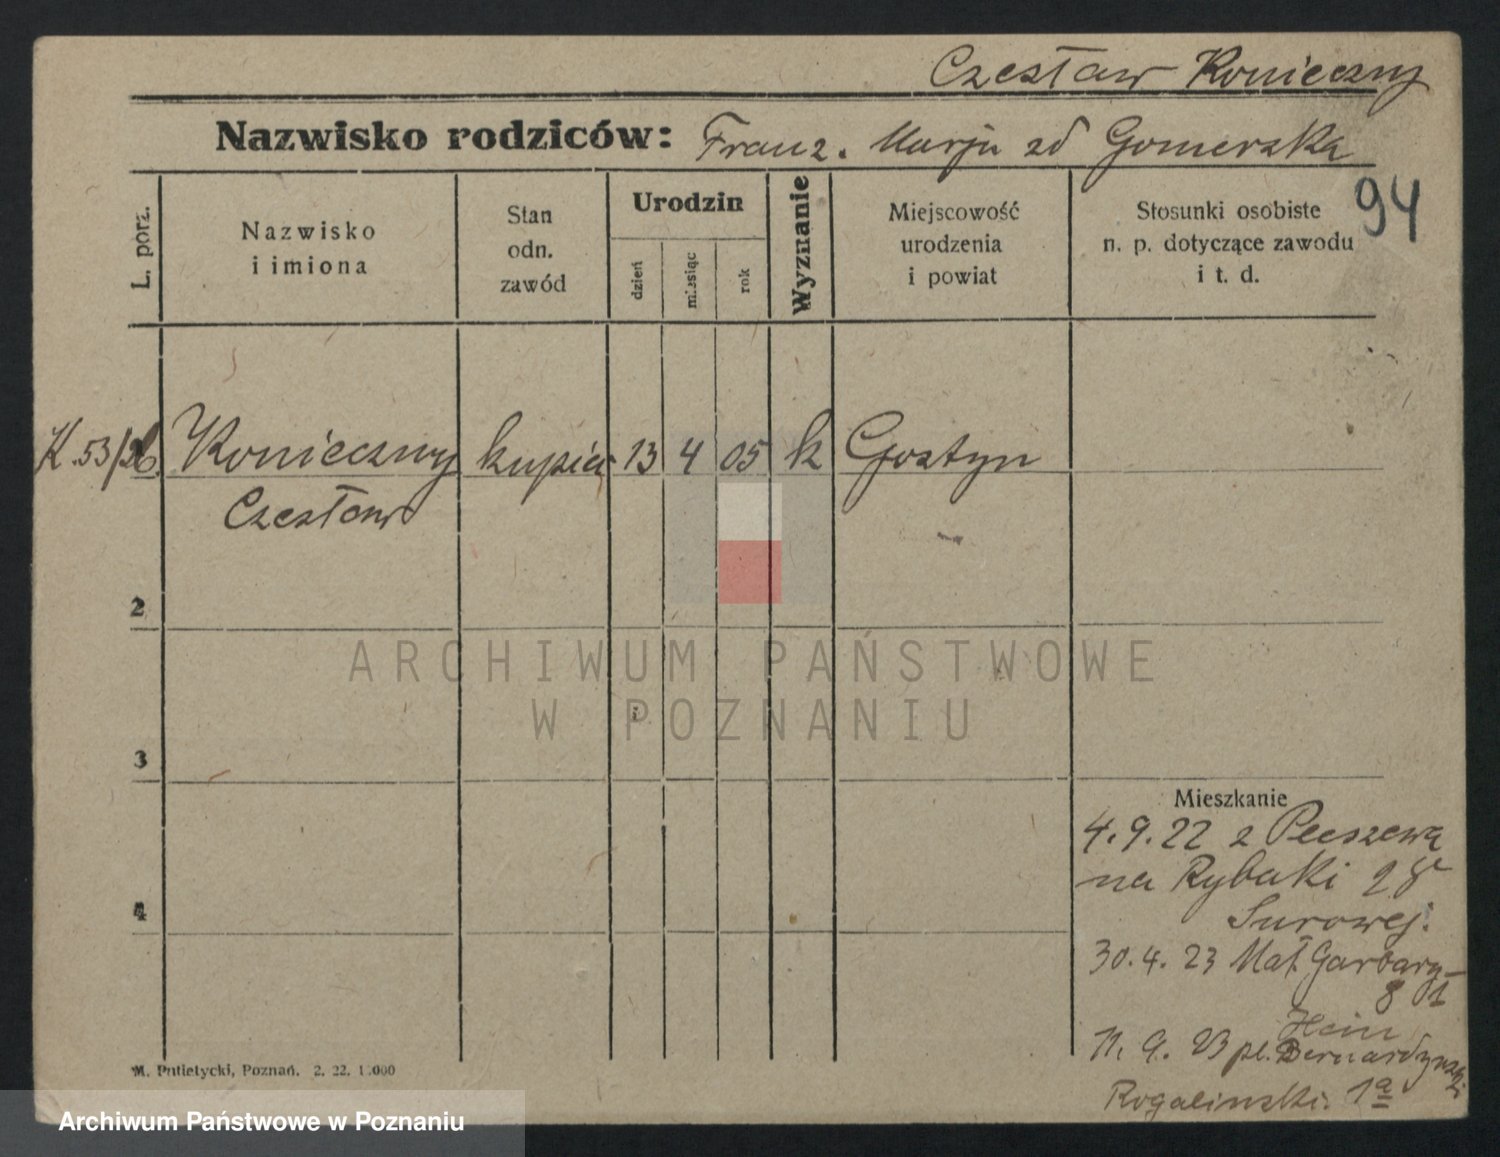 Czesław Konieczny
Nazwisko rodziców: Franz. Marja zd Gomerska
94
L. porz.
Nazwisko
i imiona
Stan
odn.
zawód
Urodzin
dzień
miesiąc
rok
Wyznanie
Miejscowość
urodzenia
i powiat
Stosunki osobiste
n. p. dotyczące zawodu
i t. d.
K.53/26. Konieczny kupiec 13 4 05 k Gostyn
Czesław
2
ARCHIWUM PAŃSTWOWE
W POZNANIU
3
Mieszkanie
4.9.22 z
na Rybaki
Surowej.
4
30.4.23 Mał. Garbary
8 I
Hein
11. 9. 23 pl. Bernardyński
Rogalinski. 1a
M. Putietycki, Poznań. 2. 22. 1.000
Archiwum Państwowe w Poznaniu